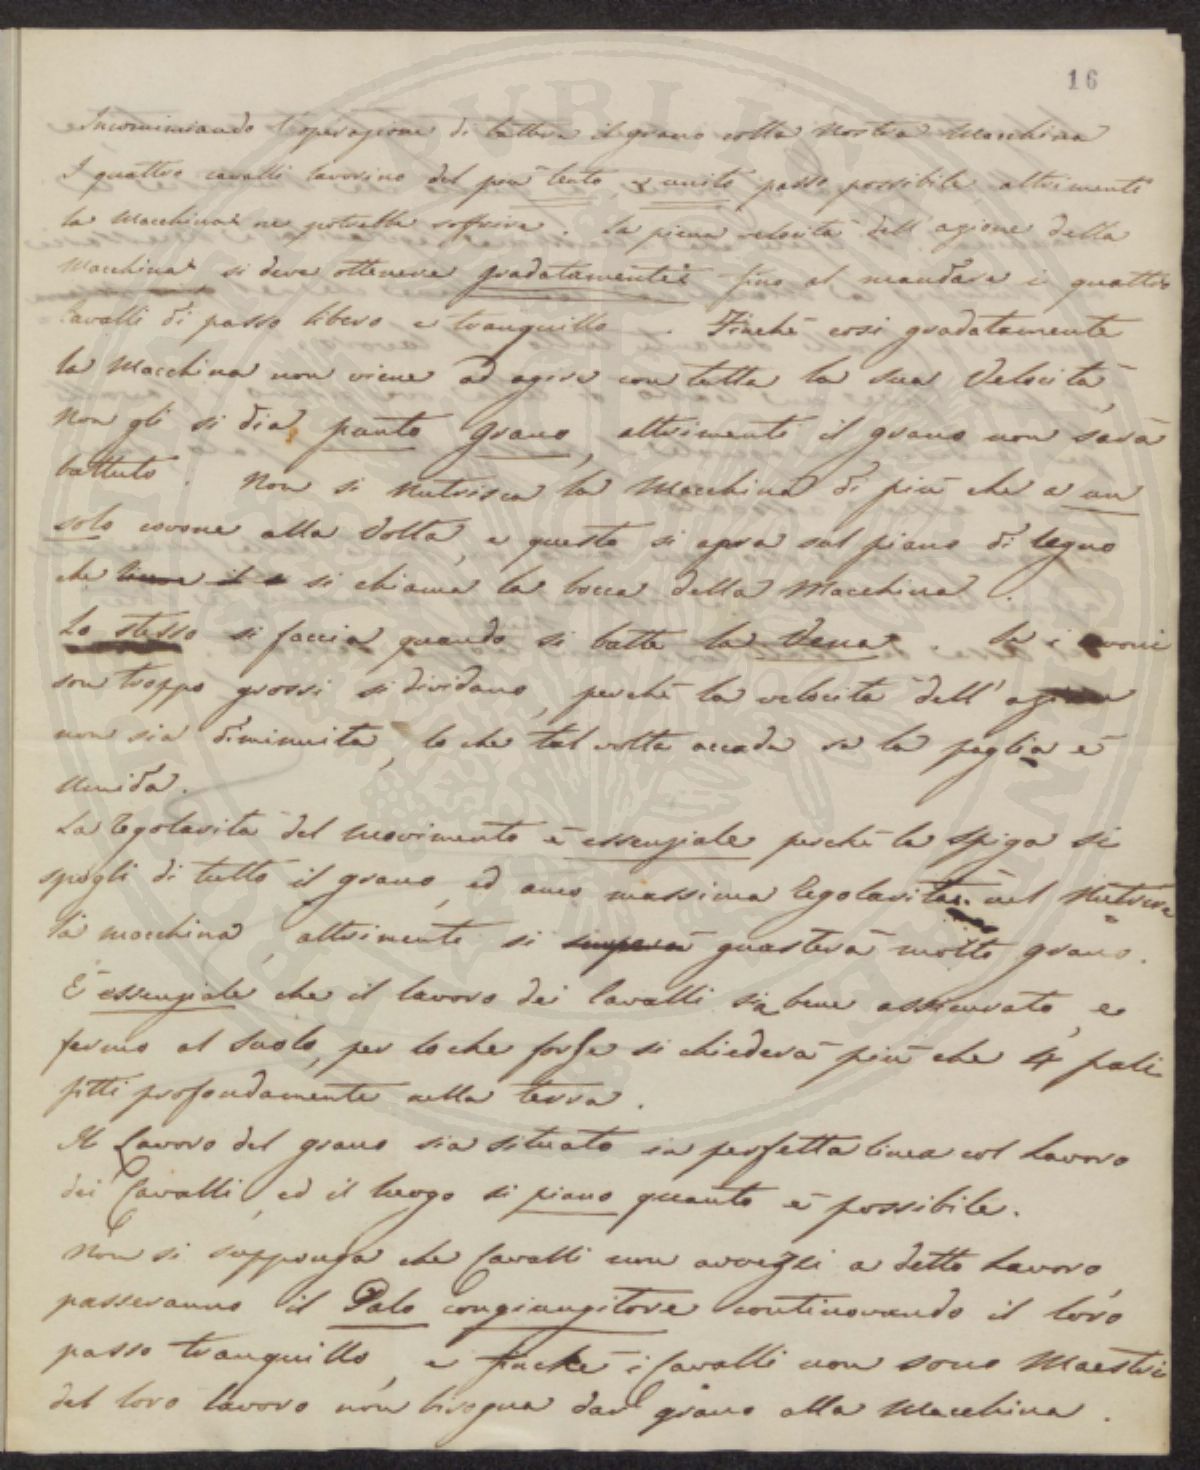 16
Incominciando l'operazione di battere il grano colla nostra Macchina
I quattro cavalli lavorino del più lento, e unito passo possibile altrimenti
la Macchina ne potrebbe soffrire. La piena velocità dell'azione della
Macchina si deve ottenere gradatamente fino al mandare i quattro
Cavalli di passo libero e tranquillo. Finchè così gradatamente
la Macchina non viene ad agire con tutta la sua Velocità,
non gli si dia punto grano, altrimenti il grano non sarà
battuto. Non si nutrisca la Macchina di più che a un
solo covone alla Volta, e questo si apra sul piano di legno
che si chiama la bocca della Macchina.
Lo stesso si faccia quando si batte la Vena. Se i covoni
son troppo grossi si dividano, perchè la velocità dell'azione
non sia diminuita, lo che tal volta accade se la paglia è
umida.
La regolarità del movimento è essenziale perchè la spiga si
spogli di tutto il grano, ed anco massima regolarità nel nutrire
la macchina, altrimente si guasterà molto grano.
È essenziale che il lavoro dei Cavalli sia bene assicurato, e
fermo al suolo, per lo che forse si chiederà più che 4 pali
fitti profondamente nella terra.
Il Lavoro del grano sia situato in perfetta linea col Lavoro
dei Cavalli, ed il luogo si piano quanto è possibile.
Non si supponga che Cavalli non avvezzi a detto Lavoro,
passeranno il Palo congiungitore continovando il loro
passo tranquillo, e finchè i Cavalli non sono Maestri
del loro lavoro non bisogna dar grano alla Macchina.